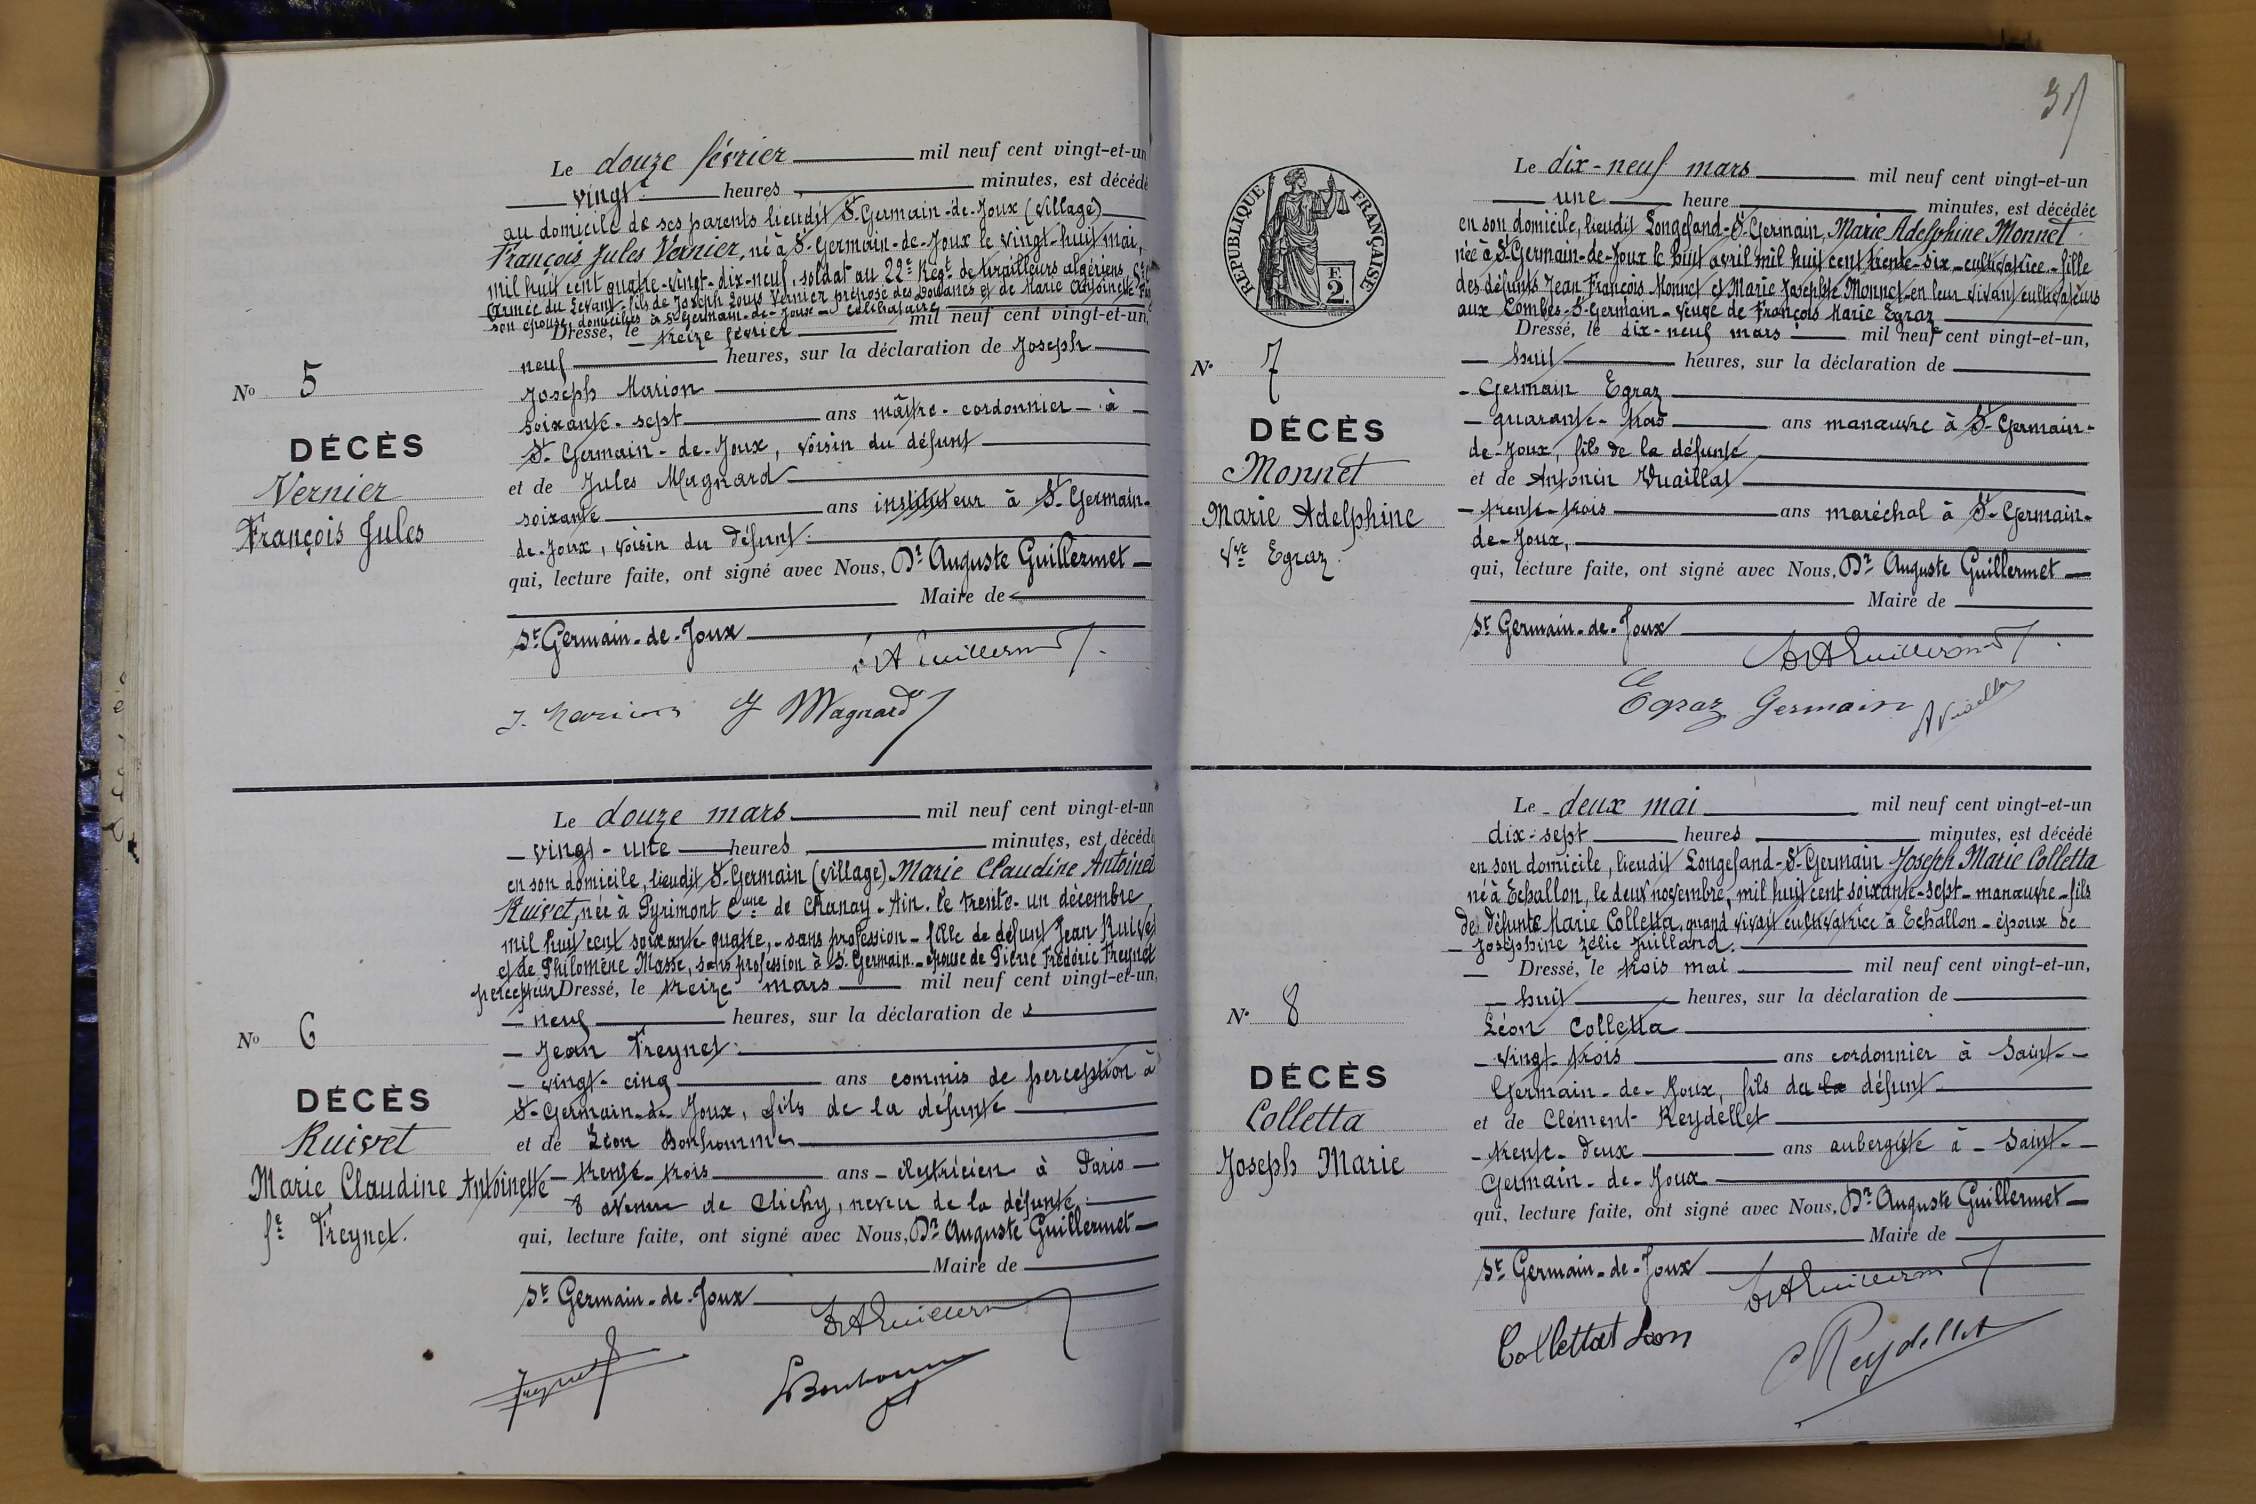 Le douze février mil neuf cent vingt-et-un
vingt heures, minutes, est décédé
au domicile de ses parents lieudit St-Germain-de-Joux (village)
François Jules Vernier, né à St-Germain-de-Joux le vingt-huit mai,
mil huit cent quatre-vingt-dix-neuf, soldat au 22e Régt de tirailleurs algériens,
armée du Levant - fils de Joseph Louis Vernier préposé des Douanes et de Marie Antoinette
son épouse, domiciliés à St Germain-de-Joux - célibataire
Dressé, le treize février mil neuf cent vingt-et-un,
neuf heures, sur la déclaration de Joseph
Joseph Marion
soixante-sept ans maître-cordonnier - à -
St-Germain-de-Joux, voisin du défunt
et de Jules Magnard
soixante ans instituteur à St-Germain-
de-Joux, voisin du défunt.
qui, lecture faite, ont signé avec Nous, Dr Auguste Guillermet
Maire de
St Germain-de-Joux
Dr A Guillermet
J. Marion J Magnard
No 5
DÉCÈS
Vernier
François Jules
Le douze mars mil neuf cent vingt-et-un
vingt-une heures, minutes, est décédé
en son domicile, lieudit St-Germain (village) Marie Claudine Antoinet
Ruivet, née à Pyrimont Cune de Chanay-Ain. le trente-un décembre
mil huit cent soixante-quatre, - sans profession - fille de défunt Jean Ruivet
et de Philomène Masse, sans profession à St-Germain. - épouse de Pierre Frédéric Treynet
percepteur Dressé, le treize mars mil neuf cent vingt-et-un,
neuf heures, sur la déclaration de
Jean Treynet.
vingt-cinq ans commis de perception à
St-Germain-de Joux, fils de la défunte
et de Léon Bonhomme
trente-trois ans - électricien à Paris
8 avenue de Clichy, neveu de la défunte.
qui, lecture faite, ont signé avec Nous, Dr Auguste Guillermet
Maire de
St Germain-de-Joux
Dr A Guillermet
Treynet LBonhomme
No 6
DÉCÈS
Ruivet
Marie Claudine Antoinette
fe Treynet.
37
RÉPUBLIQUE FRANÇAISE
F.
2.
Le dix-neuf mars mil neuf cent vingt-et-un
une heure minutes, est décédée
en son domicile, lieudit Longefand-St-Germain, Marie Adelphine Monnet
née à St-Germain-de-Joux le huit avril mil huit cent trente-six - cultivatrice - fille
des défunts Jean François Monnet et Marie Josephte Monnet - en leur vivant cultivateurs
aux Combes-St-Germain - veuve de François Marie Egraz
Dressé, le dix-neuf mars mil neuf cent vingt-et-un,
huit heures, sur la déclaration de
Germain Egraz
quarante-trois ans manœuvre à St-Germain-
de-Joux, fils de la défunte
et de Antonin Vuaillat
trente-trois ans maréchal à St-Germain-
de-Joux,
qui, lecture faite, ont signé avec Nous, Dr Auguste Guillermet
Maire de
St Germain-de-Joux
Dr A Guillermet
Egraz Germain
No 7
DÉCÈS
Monnet
Marie Adelphine
Vve Egraz.
Le deux mai mil neuf cent vingt-et-un
dix-sept heures minutes, est décédé
en son domicile, lieudit Longefand-St-Germain Joseph Marie Colletta
né à Echallon, le deux novembre, mil huit cent soixante-sept - manœuvre - fils
de défunte Marie Colletta, quand vivait cultivatrice à Echallon - époux de
Joséphine Zélie Juilland.
Dressé, le trois mai mil neuf cent vingt-et-un,
huit heures, sur la déclaration de
Léon Colletta
vingt-trois ans cordonnier à Saint-
Germain-de-Joux, fils du la défunt
et de Clément Reydellet
trente-deux ans aubergiste à - Saint-
Germain-de-Joux
qui, lecture faite, ont signé avec Nous, Dr Auguste Guillermet
Maire de
St Germain-de-Joux
Dr A Guillermet
Collettat Léon C Reydellet
No 8
DÉCÈS
Colletta
Joseph Marie